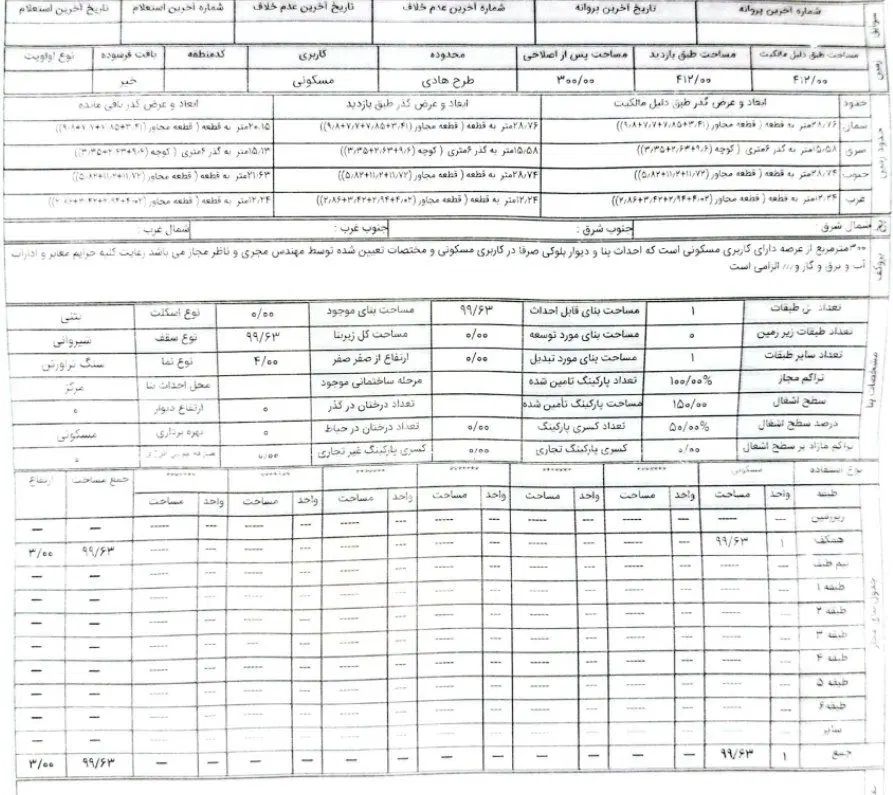 سوابق
شماره آخرین پروانه | تاریخ آخرین پروانه | شماره آخرین عدم خلاف | تاریخ آخرین عدم خلاف | شماره آخرین استعلام | تاریخ آخرین استعلام
زمین
مساحت طبق دلیل مالکیت | مساحت طبق بازدید | مساحت پس از اصلاحی | محدوده | کاربری | کدمنطقه | بافت فرسوده | نوع اولویت
۴۱۲/۰۰ | ۴۱۲/۰۰ | ۳۰۰/۰۰ | طرح هادی | مسکونی | خیر
حدود زمین
حدود | ابعاد و عرض گذر طبق دلیل مالکیت | ابعاد و عرض گذر طبق بازدید | ابعاد و عرض گذر باقی مانده
شمال | ۲۸٫۷۶متر به قطعه ( قطعه مجاور | ۲۸٫۷۶متر به قطعه ( قطعه مجاور | ۲۰٫۱۵متر به قطعه ( قطعه مجاور
۱۵٫۵۸متر به گذر ۶متری ( کوچه | ۱۵٫۵۸متر به گذر ۶متری ( کوچه | ۱۵٫۱۳متر به گذر ۶متری ( کوچه
جنوب | ۲۸٫۷۴متر به قطعه ( قطعه مجاور | ۲۸٫۷۴متر به قطعه ( قطعه مجاور | ۲۱٫۶۳متر به قطعه ( قطعه مجاور
غرب | ۱۲٫۲۴متر به قطعه ( قطعه مجاور | ۱۲٫۲۴متر به قطعه ( قطعه مجاور | ۱۲٫۲۴متر به قطعه ( قطعه مجاور
شمال شرق | جنوب شرق : | جنوب غرب : | شمال غرب :
۳۰۰مترمربع از عرصه دارای کاربری مسکونی است که احداث بنا و دیوار بلوکی صرفا در کاربری مسکونی و مختصات تعیین شده توسط مهندس مجری و ناظر مجاز می باشد رعایت کلیه حرایم معابر و ادارات
آب و برق و گاز و ... الزامی است
مشخصات بنا
تعداد کل طبقات | ۱ | مساحت بنای قابل احداث | ۹۹/۶۳ | مساحت بنای موجود | ۰/۰۰ | نوع اسکلت | بتنی
تعداد طبقات زیر زمین | ۰ | مساحت بنای مورد توسعه | ۰/۰۰ | مساحت کل زیربنا | ۹۹/۶۳ | نوع سقف | شیروانی
تعداد سایر طبقات | ۱ | مساحت بنای مورد تبدیل | ۰/۰۰ | ارتفاع از صفر صفر | ۴/۰۰ | نوع نما | سنگ تراورتن
تراکم مجاز | ۱۰۰/۰۰% | تعداد پارکینگ تامین شده | مرحله ساختمانی موجود | محل احداث بنا | مرکز
سطح اشغال | ۱۵۰/۰۰ | مساحت پارکینگ تأمین شده | تعداد درختان در گذر | ۰ | ارتفاع دیوار | ۰
درصد سطح اشغال | ۵۰/۰۰% | تعداد کسری پارکینگ | ۰/۰۰ | تعداد درختان در حیاط | ۰ | بهره برداری | مسکونی
تراکم مازاد بر سطح اشغال | ۰/۰۰ | کسری پارکینگ تجاری | ۰/۰۰ | کسری پارکینگ غیر تجاری | ۰/۰۰ | ۰
نوع استفاده | مسکونی | ******** | ******** | ******** | ******** | ******** | ******** | جمع مساحت | ارتفاع
طبقه | واحد | مساحت | واحد | مساحت | واحد | مساحت | واحد | مساحت | واحد | مساحت | واحد | مساحت | واحد | مساحت
زیرزمین
همکف | ۱ | ۹۹/۶۳ | ۹۹/۶۳ | ۳/۰۰
نیم طبقه
طبقه ۱
طبقه ۲
طبقه ۳
طبقه ۴
طبقه ۵
طبقه ۶
سایر
جمع | ۱ | ۹۹/۶۳ | ۹۹/۶۳ | ۳/۰۰